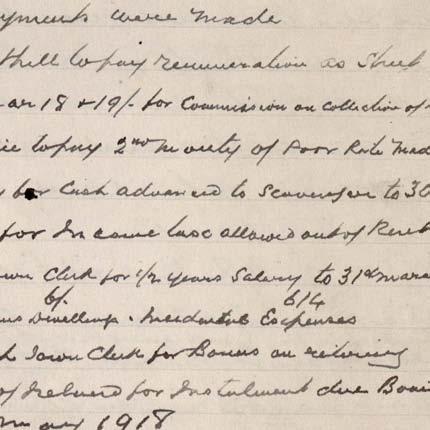 yments were made
thill to pay remuneration as Street
ar 18 & 19/- for Commission on collection of
ice to pay 2nd Moiety of Poor Rate Mad
for Cash advanced to Scavenger to 30
for Income tax allowed out of Rent
own Clerk for 1/2 years Salary to 31st Marc
6/. 614
ns Dwellings. Incidental Expenses
h Town Clerk for Bonus on retiring
of Ireland for Instalment due Boar
1918